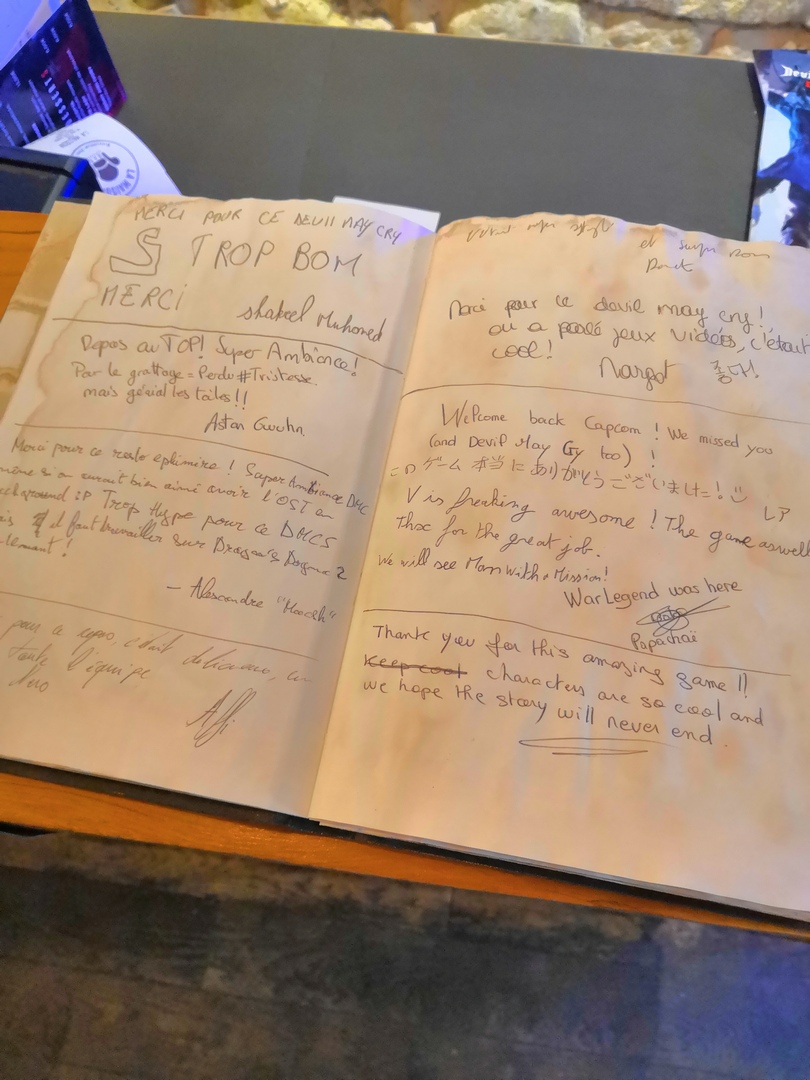 MERCI POUR CE DEVIL MAY CRY
S TROP BOM
MERCI
shakeel Muhomed
Repas au TOP! Super Ambiance!
Par le grattage = Perdu #Tristesse.
mais génial les toiles!!
Merci pour ce resto ephémère ! Super Ambiance DMC
même si on aurait bien aimé avoir l'OST en
background :P Trop Hype pour ce DMC5
il faut travailler sur Dragon's Dogma 2
– Alexandre "
pour ce repas, c'était délicieux,
toute l'équipe
et
Merci pour ce devil may cry!
on a parlé jeux vidéos, c'était
cool!
Margot 좋다!
Welcome back Capcom ! We missed you
(and Devil May Cry too) !
このゲーム 本当にありがとうございました!
レア
V is freaking awesome ! The game aswell
thx for the great job.
We will see Man With a Mission!
WarLegend was here
Papachaï
Thank you for this amazing game !!
Keep cool characters are so cool and
we hope the story will never end.